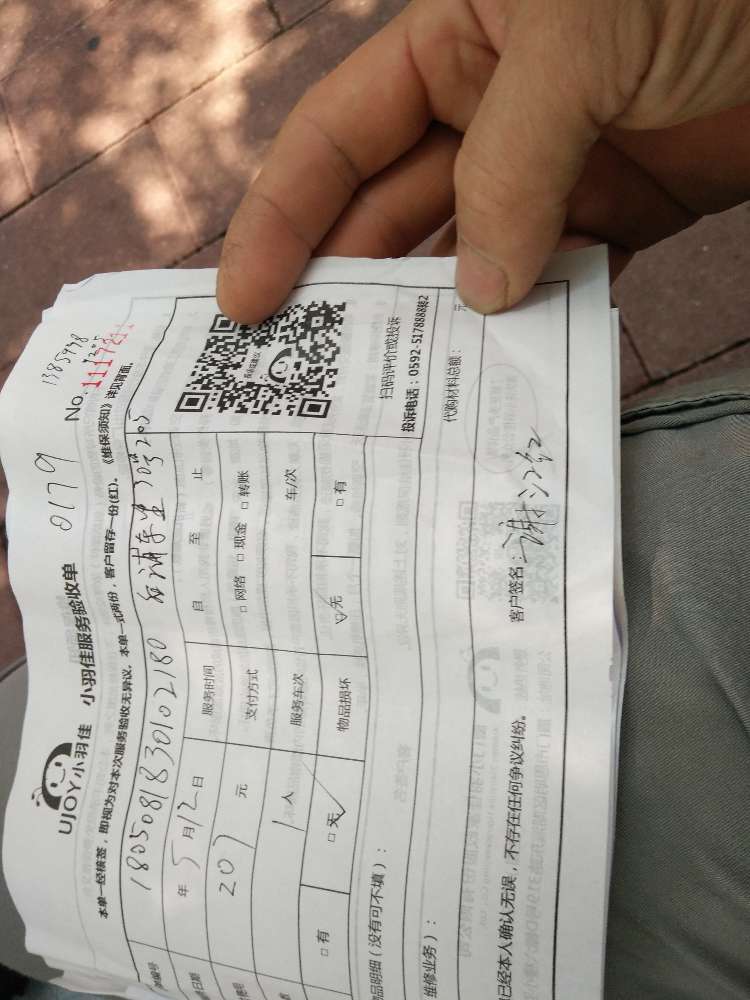 UJOY小羽佳 小羽佳服务验收单
0179
No.
本单一经核签，即视为对本次服务验收无异议，本单一式两份，客户留存一份(红)。《维保须知》详见背面。
编号 1805081830102180
日期 年 5月12日 服务时间 自 至 止
207 元 支付方式 □网络 □现金 □转账
1人 服务车次 车/次
□有 □无 物品损坏 □无 □有
扫码评价或投诉
投诉电话：0592-5178888转2
品明细（没有可不填）：
代购材料总额： 元
维修业务）：
已经本人确认无误，不存在任何争议纠纷。
客户签名：